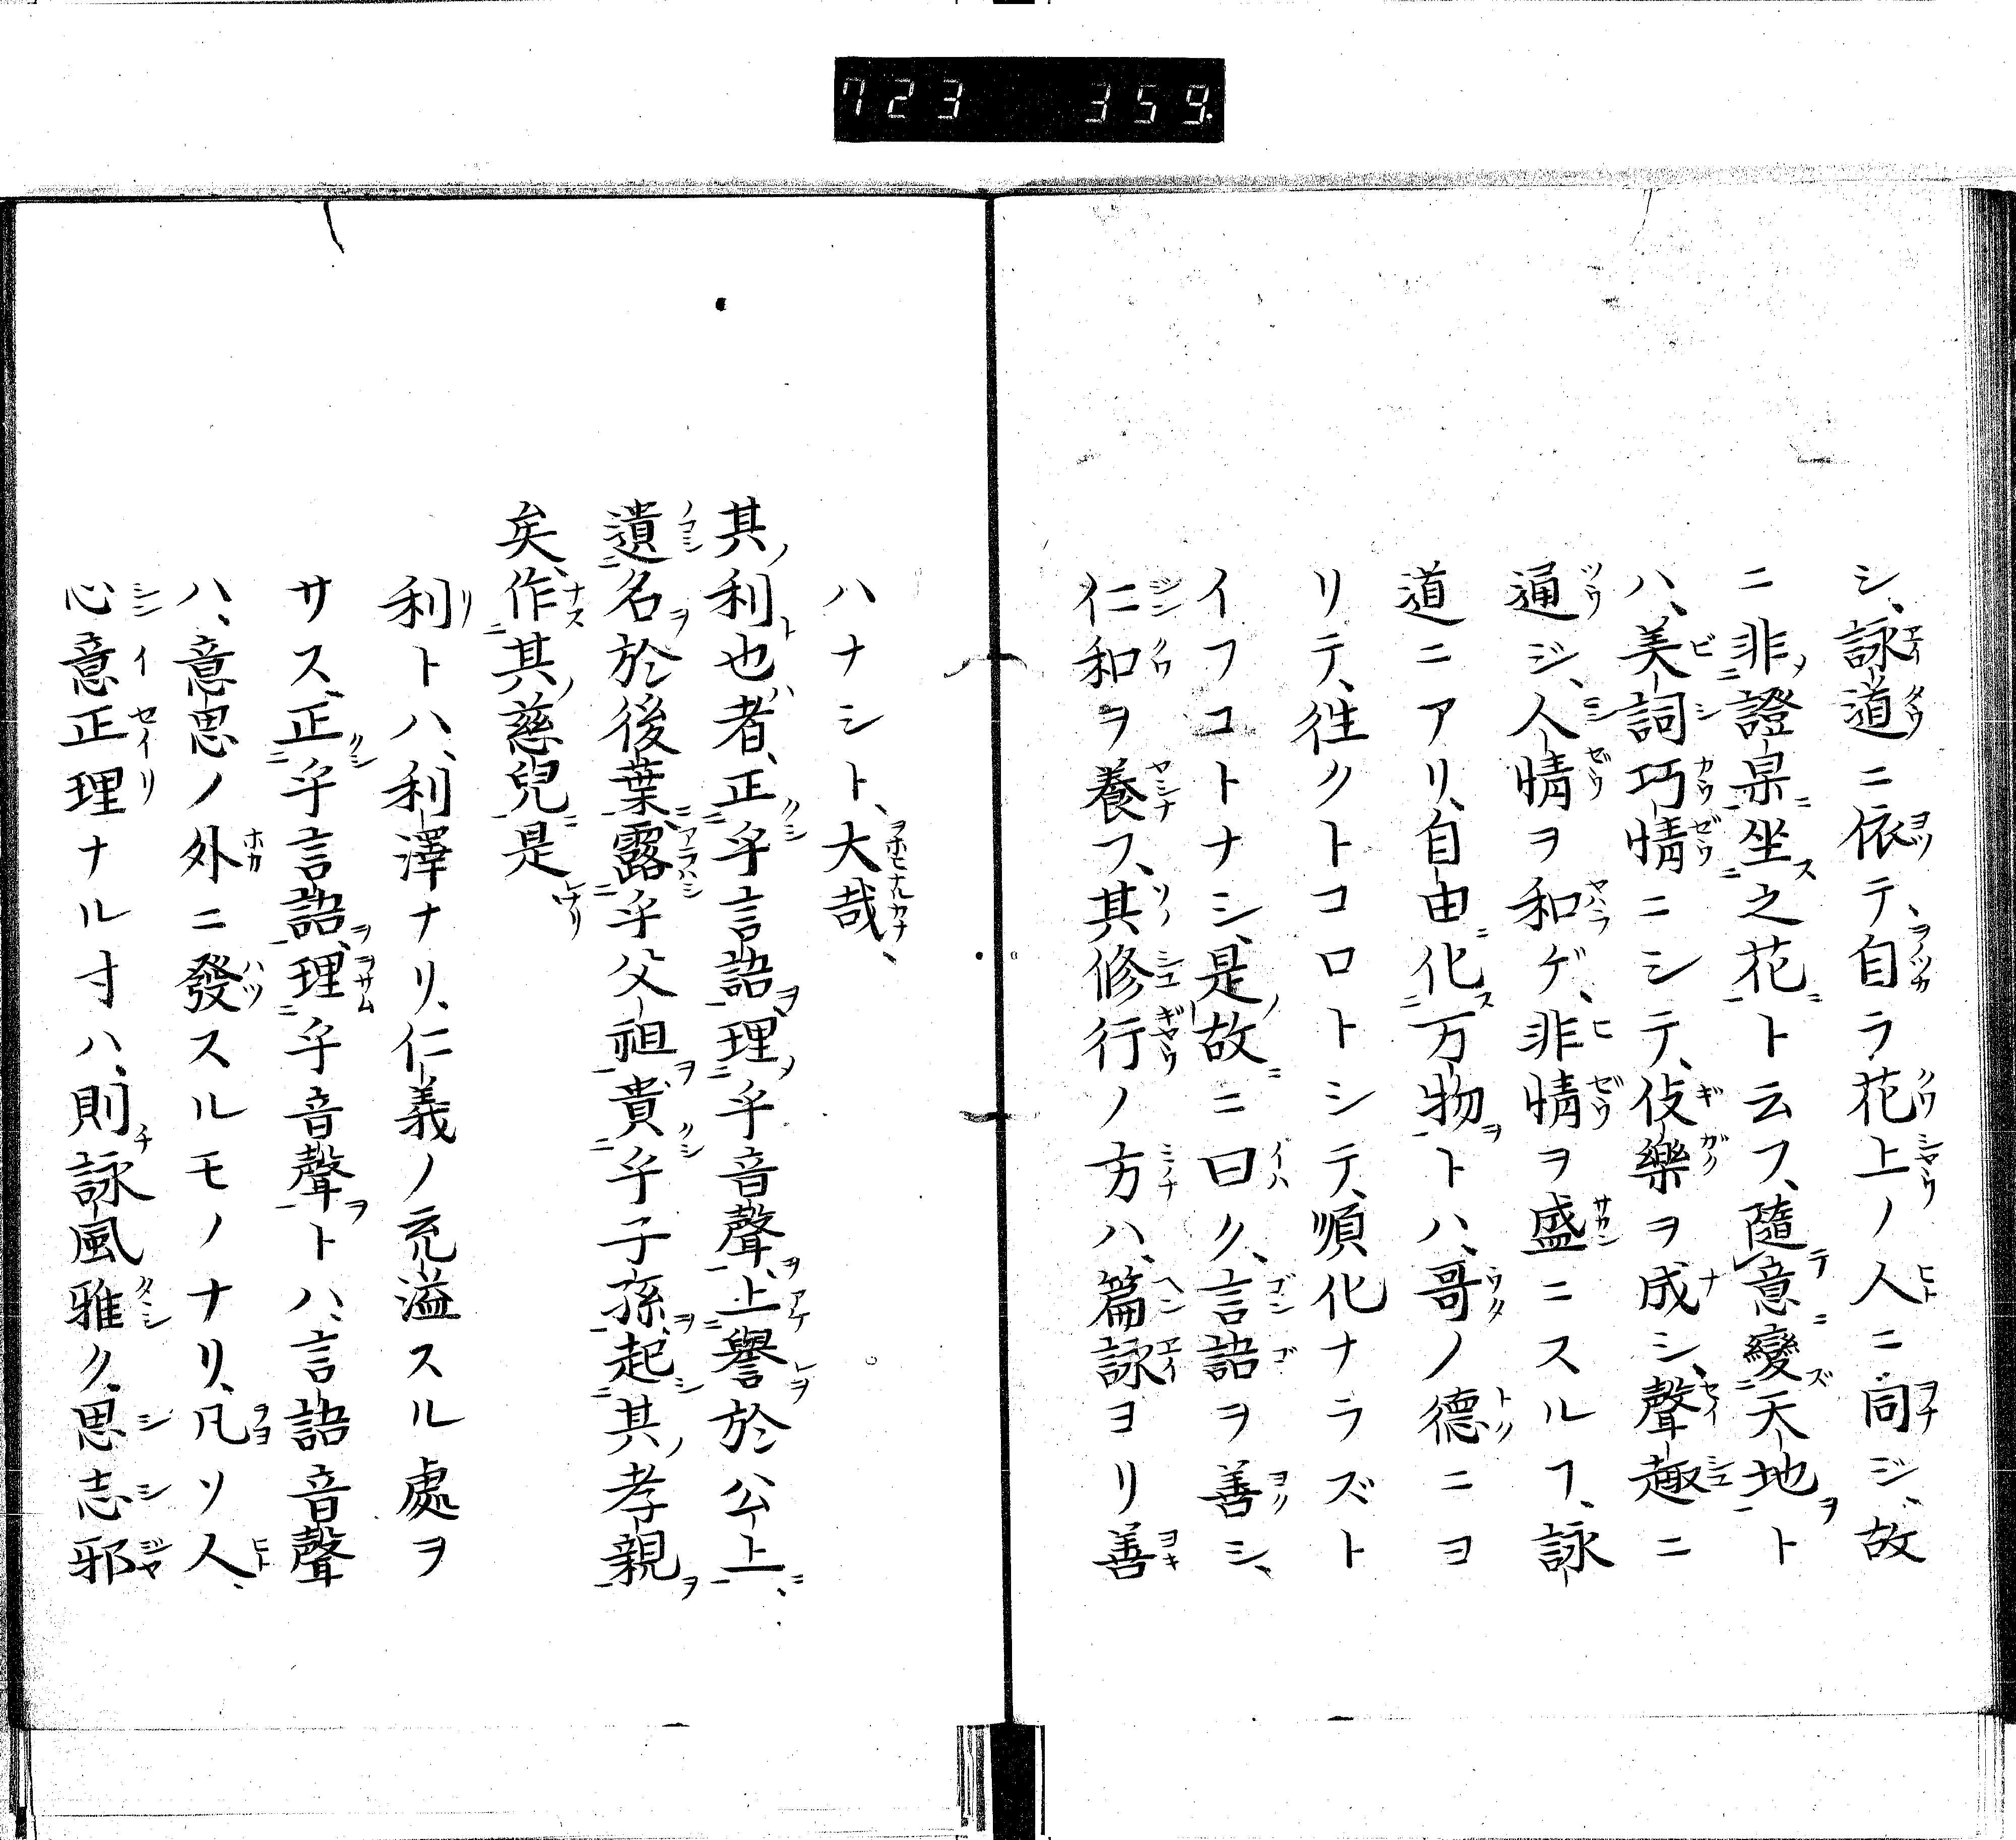 723 359
シ、詠道ニ依テ、自ラ花上ノ人ニ同ジ、故
ニ非證杲坐之花ト云フ、隨意變天地ト
ハ、美詞巧情ニシテ、伎樂ヲ成シ、聲趣ニ
通ジ、人情ヲ和ゲ、非情ヲ盛ニスルヿ、詠
道ニアリ、自由化万物トハ、哥ノ德ニヨ
リテ、徃クトコロトシテ、順化ナラズト
イフコトナシ、是故ニ曰ク、言語ヲ善シ、
仁和ヲ養フ、其修行ノ方ハ、篇詠ヨリ善
ハナシト、大哉、
其利也者、正乎言語、理乎音聲、上譽於公上、
遺名於後葉、露乎父祖、貴乎子孫、起其孝親
矣、作其慈兒是
利トハ、利澤ナリ、仁義ノ充溢スル處ヲ
サス、正乎言語、理乎音聲トハ、言語音聲
ハ、意思ノ外ニ發スルモノナリ、凡ソ人、
心意正理ナル寸ハ、則詠風雅ク、思志邪